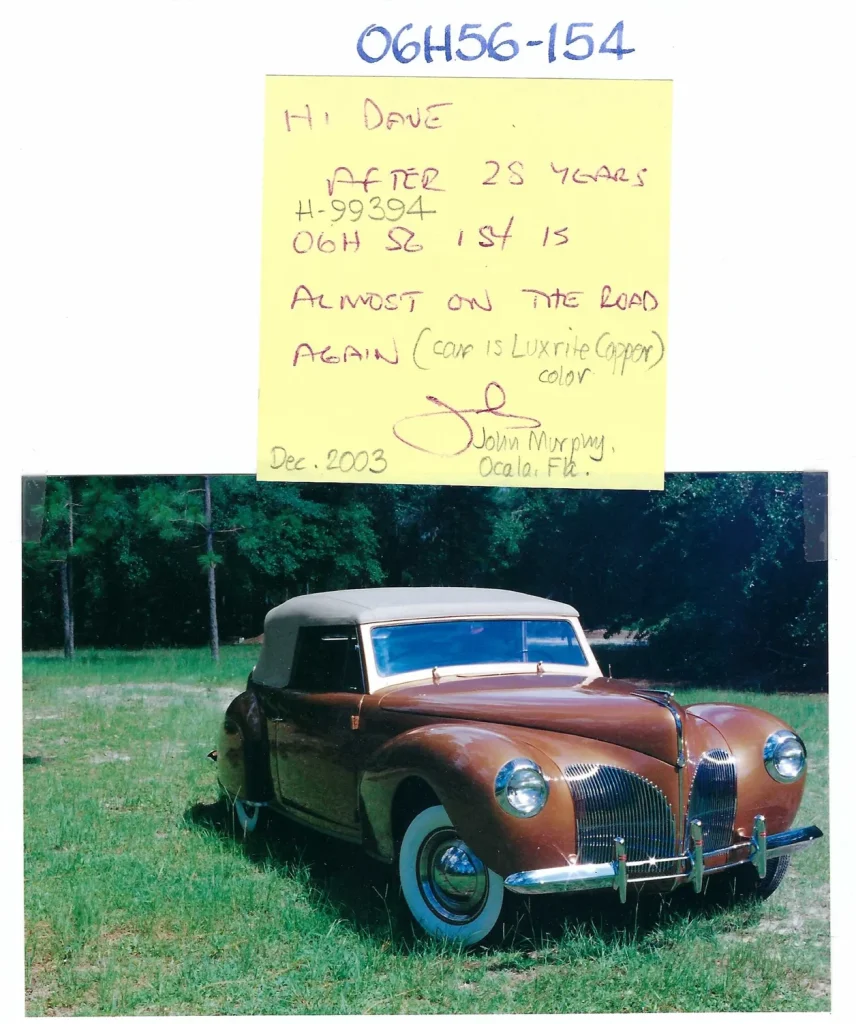 06H56-154
HI DAVE
AFTER 25 YEARS
H-99394
06H 56 154 IS
ALMOST ON THE ROAD
AGAIN (car is Luxrite Copper)
color
John Murphy.
Dec. 2003
Ocala. Fla.